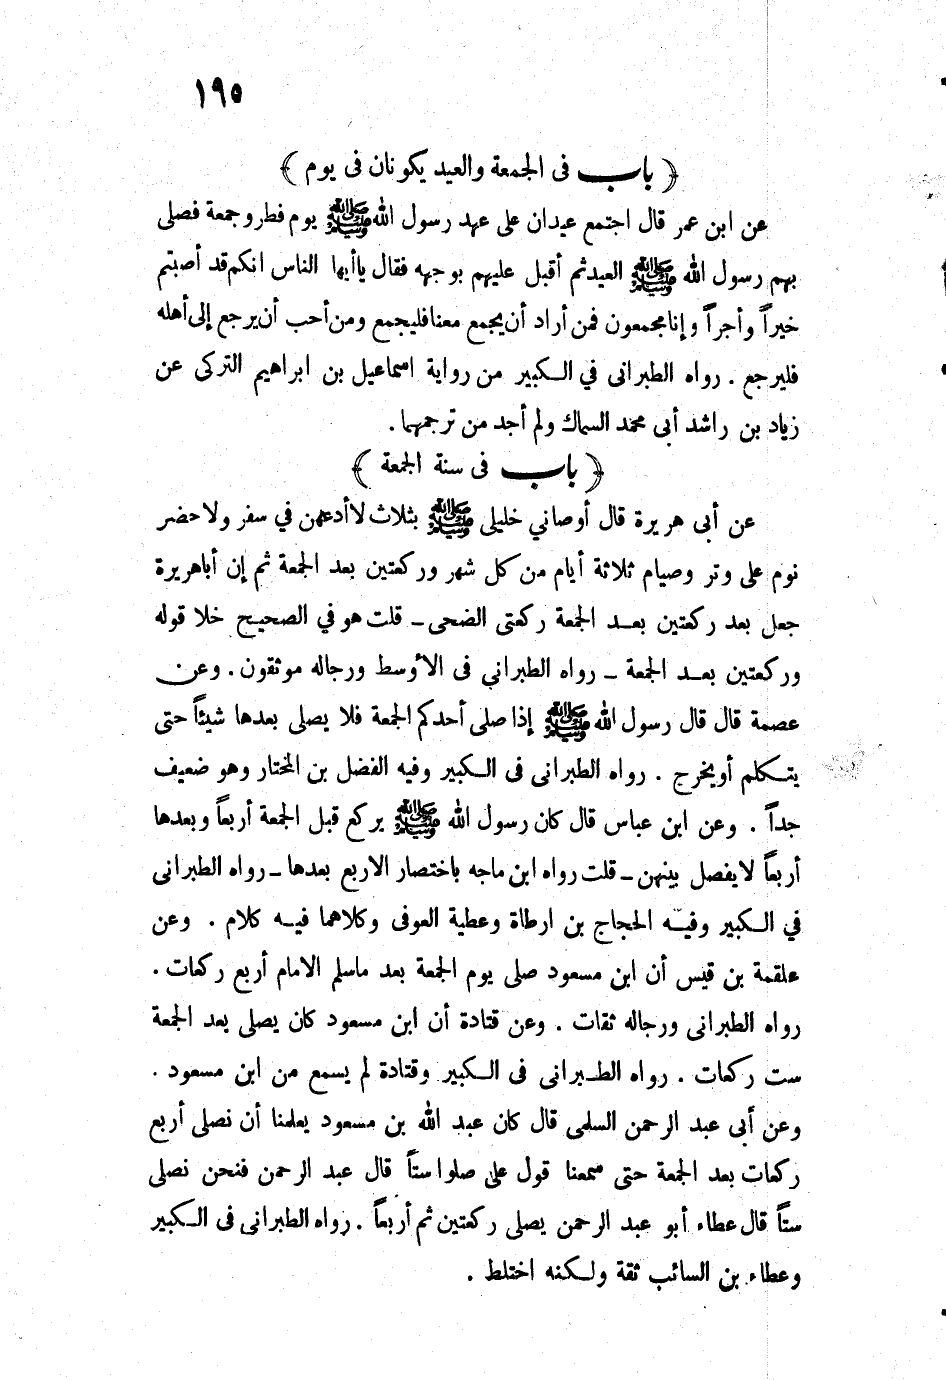 ١٩٥
﴿ باب فى الجمعة والعيد يكونان فى يوم ﴾
عن ابن عمر قال اجتمع عيدان على عهد رسول الله ﷺ يوم فطر وجمعة فصلى
بهم رسول الله ﷺ العيد ثم أقبل عليهم بوجهه فقال ياأيها الناس انكم قد أصبتم
خيراً وأجراً وإنا مجمعون فمن أراد أن يجمع معنا فليجمع ومن أحب أن يرجع إلى أهله
فليرجع . رواه الطبرانى في الكبير من رواية اسماعيل بن ابراهيم التركى عن
زياد بن راشد أبى محمد السماك ولم أجد من ترجمهما .
﴿ باب فى سنة الجمعة ﴾
عن أبى هريرة قال أوصاني خليلى ﷺ بثلاث لاأدعهن في سفر ولا حضر
نوم على وتر وصيام ثلاثة أيام من كل شهر وركعتين بعد الجمعة ثم إن أباهريرة
جعل بعد ركعتين بعد الجمعة ركعتى الضحى ـ قلت هو في الصحيح خلا قوله
وركعتين بعد الجمعة ـ رواه الطبراني فى الأوسط ورجاله موثقون . وعن
عصمة قال قال رسول الله ﷺ إذا صلى أحدكم الجمعة فلا يصلى بعدها شيئاً حتى
يتكلم أو يخرج . رواه الطبرانى فى الكبير وفيه الفضل بن المختار وهو ضعيف
جداً . وعن ابن عباس قال كان رسول الله ﷺ يركع قبل الجمعة أربعاً وبعدها
أربعاً لايفصل بينهن ـ قلت رواه ابن ماجه باختصار الاربع بعدها ـ رواه الطبرانى
في الكبير وفيه الحجاج بن ارطاة وعطية العوفى وكلاهما فيه كلام . وعن
علقمة بن قيس أن ابن مسعود صلى يوم الجمعة بعد ماسلم الامام أربع ركعات .
رواه الطبرانى ورجاله ثقات . وعن قتادة أن ابن مسعود كان يصلى بعد الجمعة
ست ركعات . رواه الطبرانى فى الكبير وقتادة لم يسمع من ابن مسعود .
وعن أبى عبد الرحمن السلمى قال كان عبد الله بن مسعود يعلمنا أن نصلى أربع
ركعات بعد الجمعة حتى سمعنا قول على صلوا ستاً قال عبد الرحمن فنحن نصلى
ستاً قال عطاء أبو عبد الرحمن يصلى ركعتين ثم أربعاً . رواه الطبرانى فى الكبير
وعطاء بن السائب ثقة ولكنه اختلط .